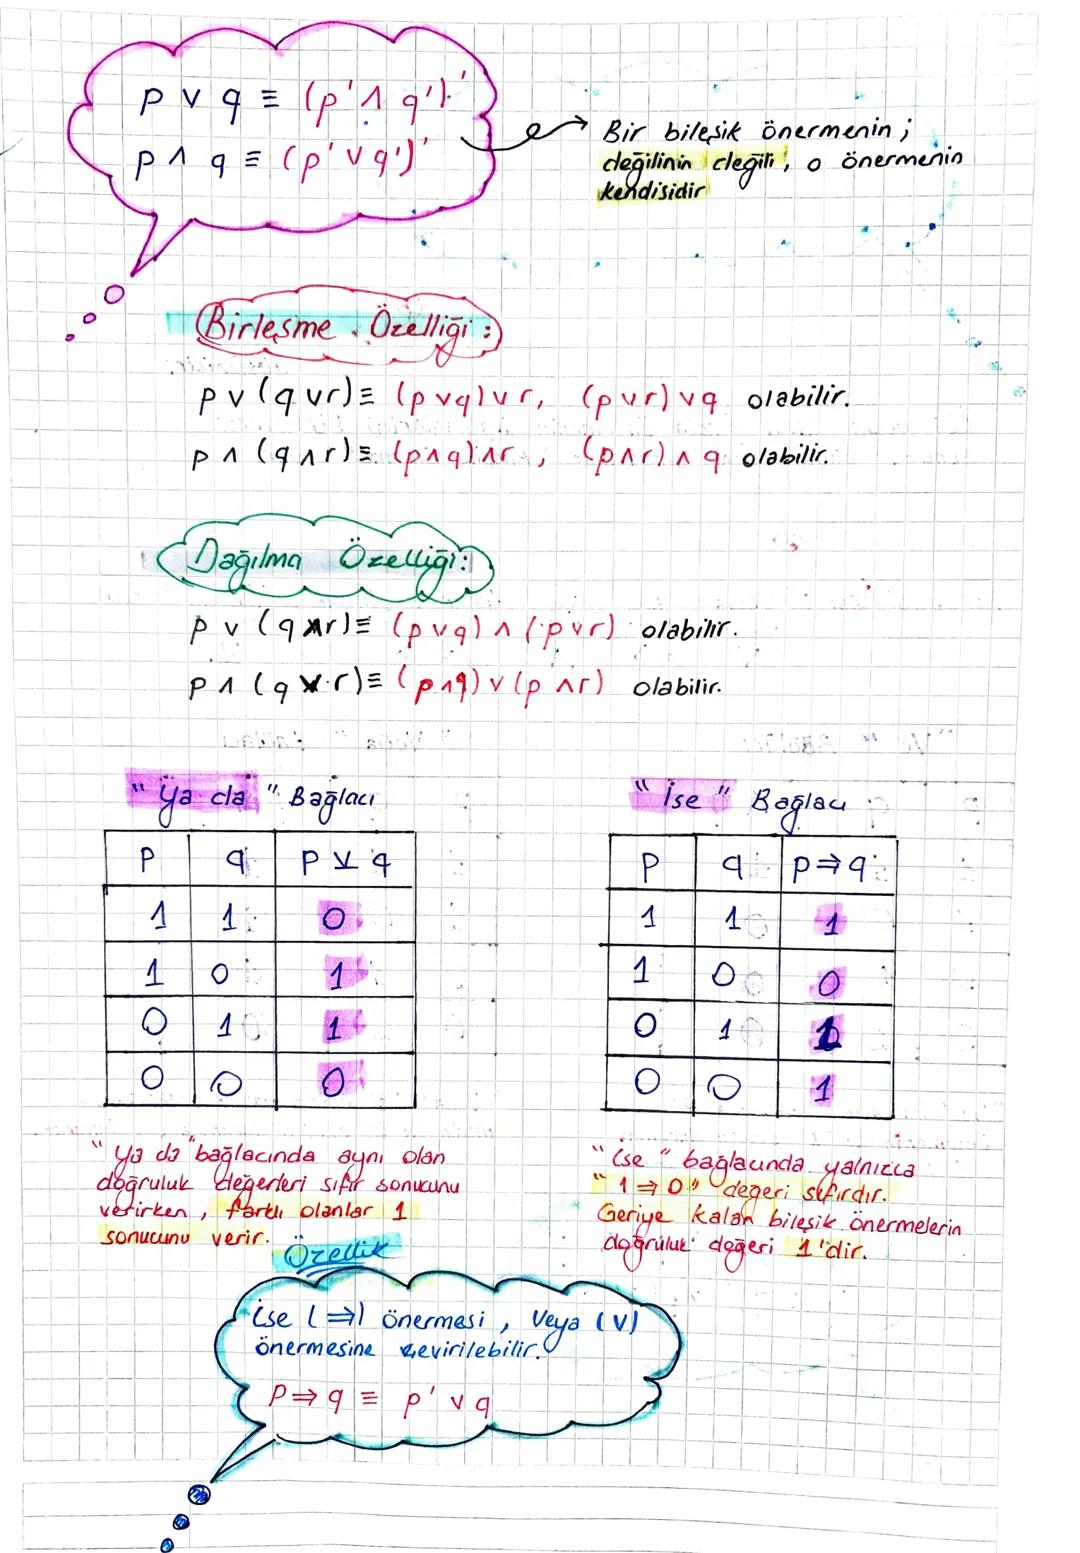 p ∨ q ≡ (p' ∧ q')'
p ∧ q ≡ (p' ∨ q')'
Bir bileşik önermenin;
değilinin değili, o önermenin
kendisidir
Birleşme Özelliği:
p ∨ (q ∨ r) ≡ (p ∨ q) ∨ r, (p ∨ r) ∨ q olabilir.
p ∧ (q ∧ r) ≡ (p ∧ q) ∧ r, (p ∧ r) ∧ q olabilir.
Dağılma Özelliği:
p ∨ (q ∧ r) ≡ (p ∨ q) ∧ (p ∨ r) olabilir.
p ∧ (q ∨ r) ≡ (p ∧ q) ∨ (p ∧ r) olabilir.
"Ya da" Bağlacı
p q p ⊻ q
1 1 0
1 0 1
0 1 1
0 0 0
"Ya da" bağlacında aynı olan
doğruluk değerleri sıfır sonucunu
verirken, farklı olanlar 1
sonucunu verir.
"İse" Bağlacı
p q p ⇒ q
1 1 1
1 0 0
0 1 1
0 0 1
"ise" bağlacında yalnızca
"1 ⇒ 0" değeri sıfırdır.
Geriye kalan bileşik önermelerin
doğruluk değeri 1'dir.
Özellik
İse (⇒) önermesi, Veya (∨)
önermesine çevirilebilir.
p ⇒ q ≡ p' ∨ q